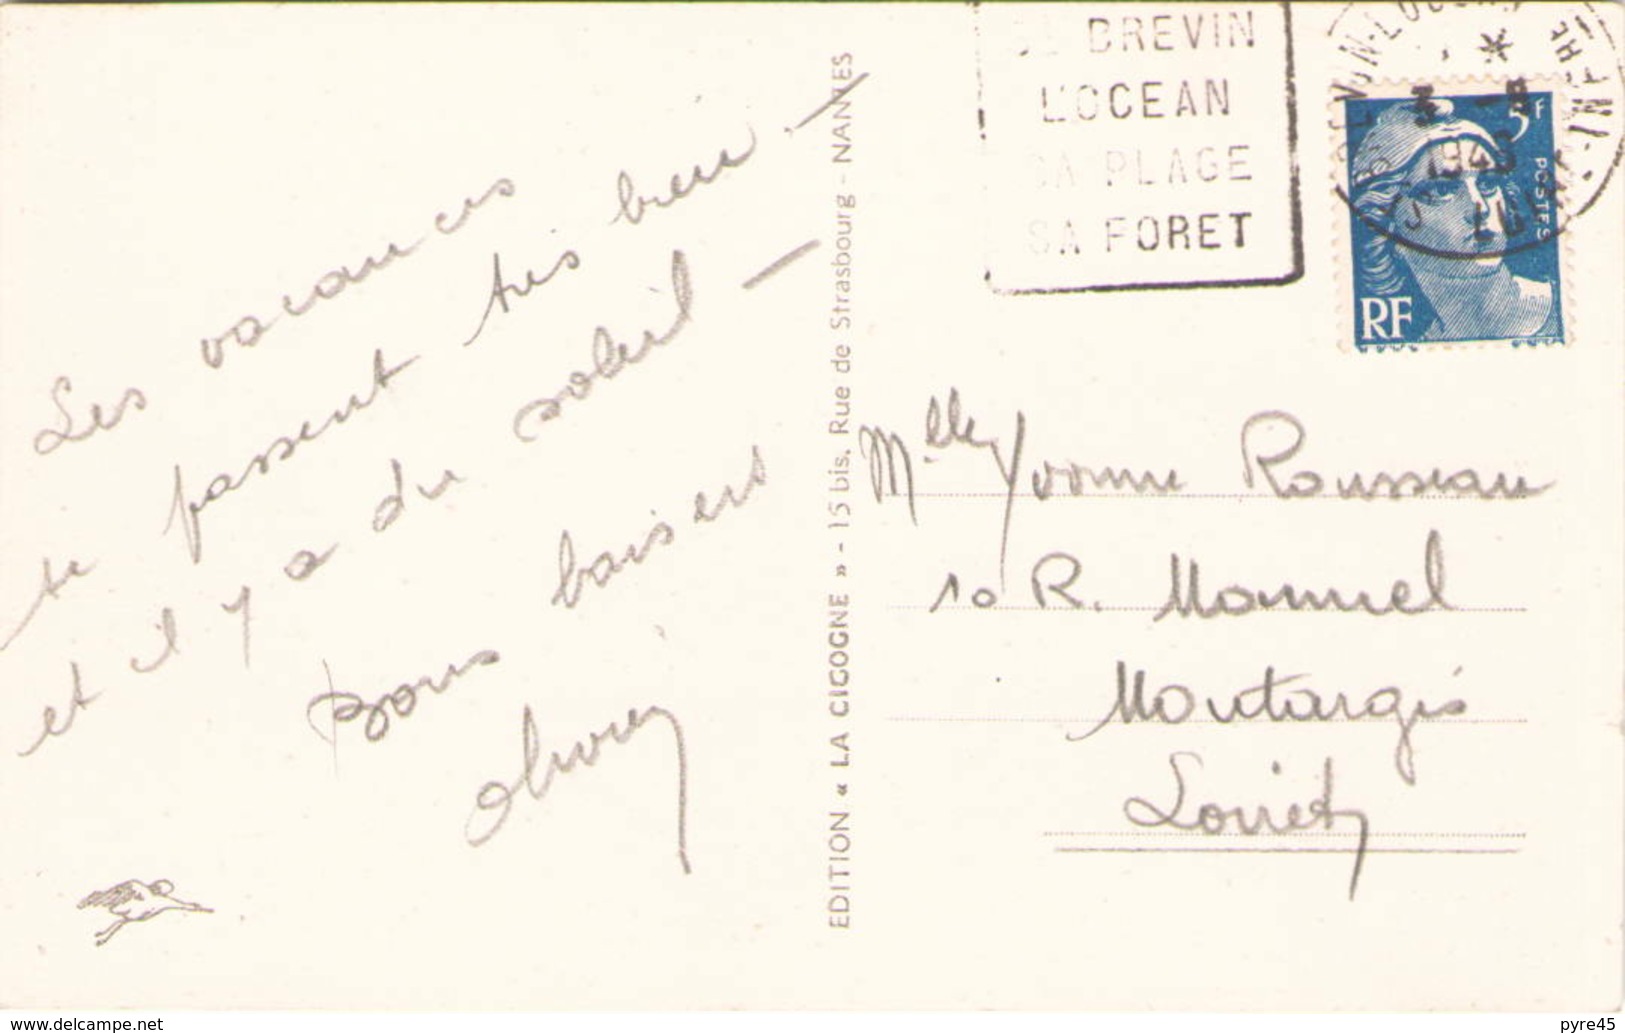 Les vacances
se passent très bien -
et il y a du soleil -
Bons baisers
EDITION « LA CIGOGNE » - 15 bis, Rue de Strasbourg - NANTES
BREVIN
L'OCEAN
SA PLAGE
SA FORET
1949
5F
POSTES
RF
Mlle Yvonne Rousseau
10 R. Manuel
Montargis
Loiret
www.delcampe.net
pyre45